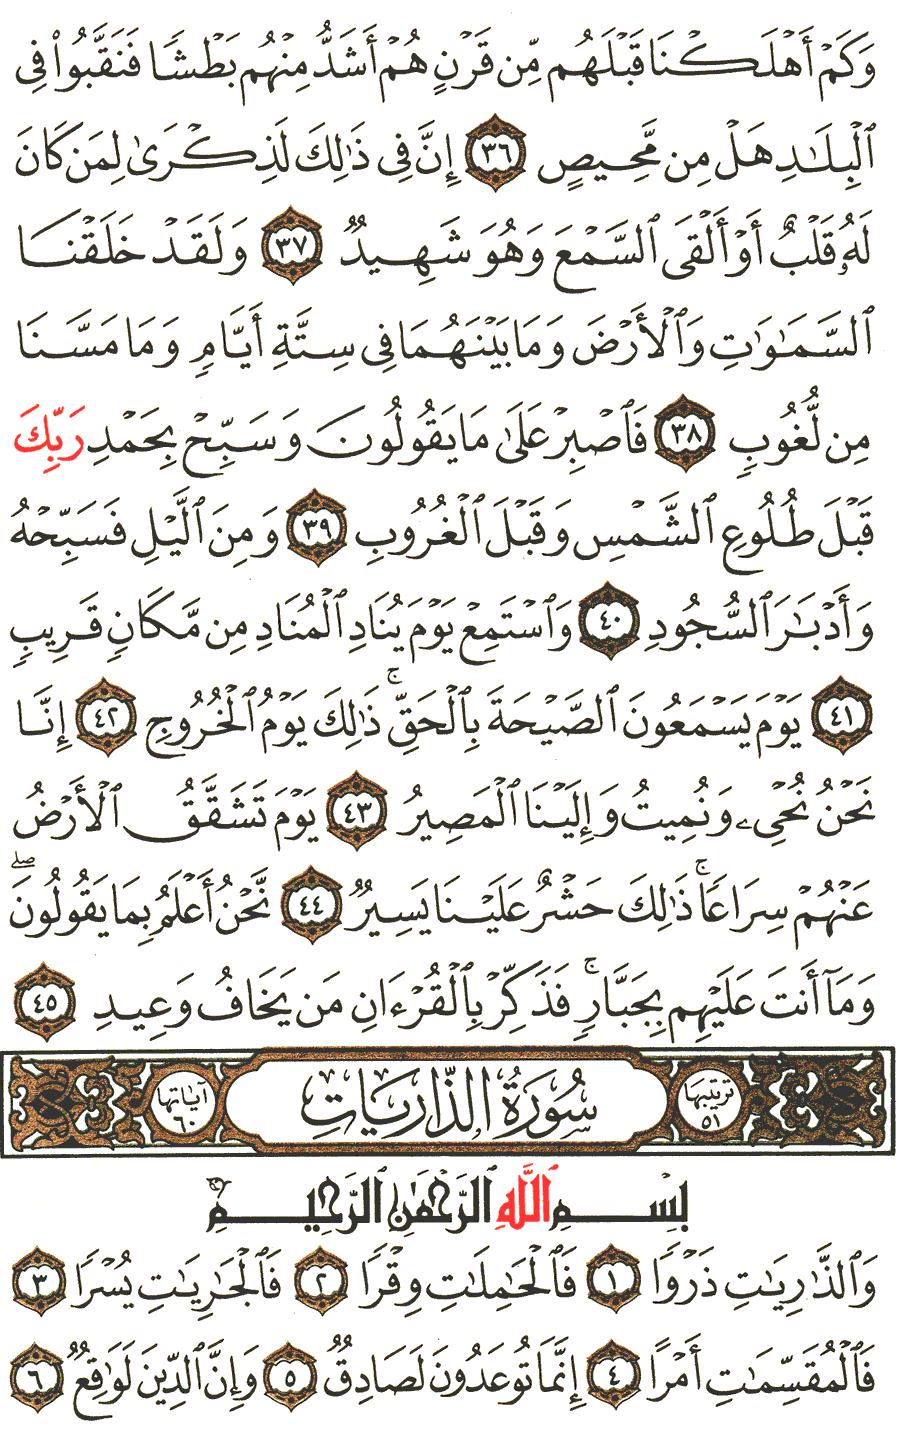 وَكَمْ أَهْلَكْنَا قَبْلَهُم مِّن قَرْنٍ هُمْ أَشَدُّ مِنْهُم بَطْشًا فَنَقَّبُوا۟ فِى
ٱلْبِلَـٰدِ هَلْ مِن مَّحِيصٍ ٣٦ إِنَّ فِى ذَٰلِكَ لَذِكْرَىٰ لِمَن كَانَ
لَهُۥ قَلْبٌ أَوْ أَلْقَى ٱلسَّمْعَ وَهُوَ شَهِيدٌ ٣٧ وَلَقَدْ خَلَقْنَا
ٱلسَّمَـٰوَٰتِ وَٱلْأَرْضَ وَمَا بَيْنَهُمَا فِى سِتَّةِ أَيَّامٍ وَمَا مَسَّنَا
مِن لُّغُوبٍ ٣٨ فَٱصْبِرْ عَلَىٰ مَا يَقُولُونَ وَسَبِّحْ بِحَمْدِ رَبِّكَ
قَبْلَ طُلُوعِ ٱلشَّمْسِ وَقَبْلَ ٱلْغُرُوبِ ٣٩ وَمِنَ ٱلَّيْلِ فَسَبِّحْهُ
وَأَدْبَـٰرَ ٱلسُّجُودِ ٤٠ وَٱسْتَمِعْ يَوْمَ يُنَادِ ٱلْمُنَادِ مِن مَّكَانٍ قَرِيبٍ
٤١ يَوْمَ يَسْمَعُونَ ٱلصَّيْحَةَ بِٱلْحَقِّ ۚ ذَٰلِكَ يَوْمُ ٱلْخُرُوجِ ٤٢ إِنَّا
نَحْنُ نُحْىِۦ وَنُمِيتُ وَإِلَيْنَا ٱلْمَصِيرُ ٤٣ يَوْمَ تَشَقَّقُ ٱلْأَرْضُ
عَنْهُمْ سِرَاعًا ۚ ذَٰلِكَ حَشْرٌ عَلَيْنَا يَسِيرٌ ٤٤ نَّحْنُ أَعْلَمُ بِمَا يَقُولُونَ ۖ
وَمَآ أَنتَ عَلَيْهِم بِجَبَّارٍ ۚ فَذَكِّرْ بِٱلْقُرْءَانِ مَن يَخَافُ وَعِيدِ ٤٥
ترتيبها ٥١ سُورَةُ الذَّارِيَاتِ آياتها ٦٠
بِسْمِ ٱللَّهِ ٱلرَّحْمَـٰنِ ٱلرَّحِيمِ
وَٱلذَّٰرِيَـٰتِ ذَرْوًا ١ فَٱلْحَـٰمِلَـٰتِ وِقْرًا ٢ فَٱلْجَـٰرِيَـٰتِ يُسْرًا ٣
فَٱلْمُقَسِّمَـٰتِ أَمْرًا ٤ إِنَّمَا تُوعَدُونَ لَصَادِقٌ ٥ وَإِنَّ ٱلدِّينَ لَوَٰقِعٌ ٦